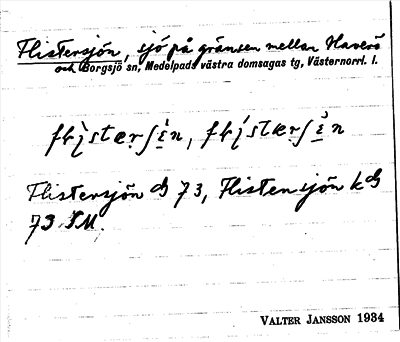 Flistersjön, sjö på gränsen mellan Haverö
och Borgsjö sn, Medelpads västra domsagas tg, Västernorrl. l.
Flistersjön ds 73, Flistensjön k ds
73 SM.
VALTER JANSSON 1934